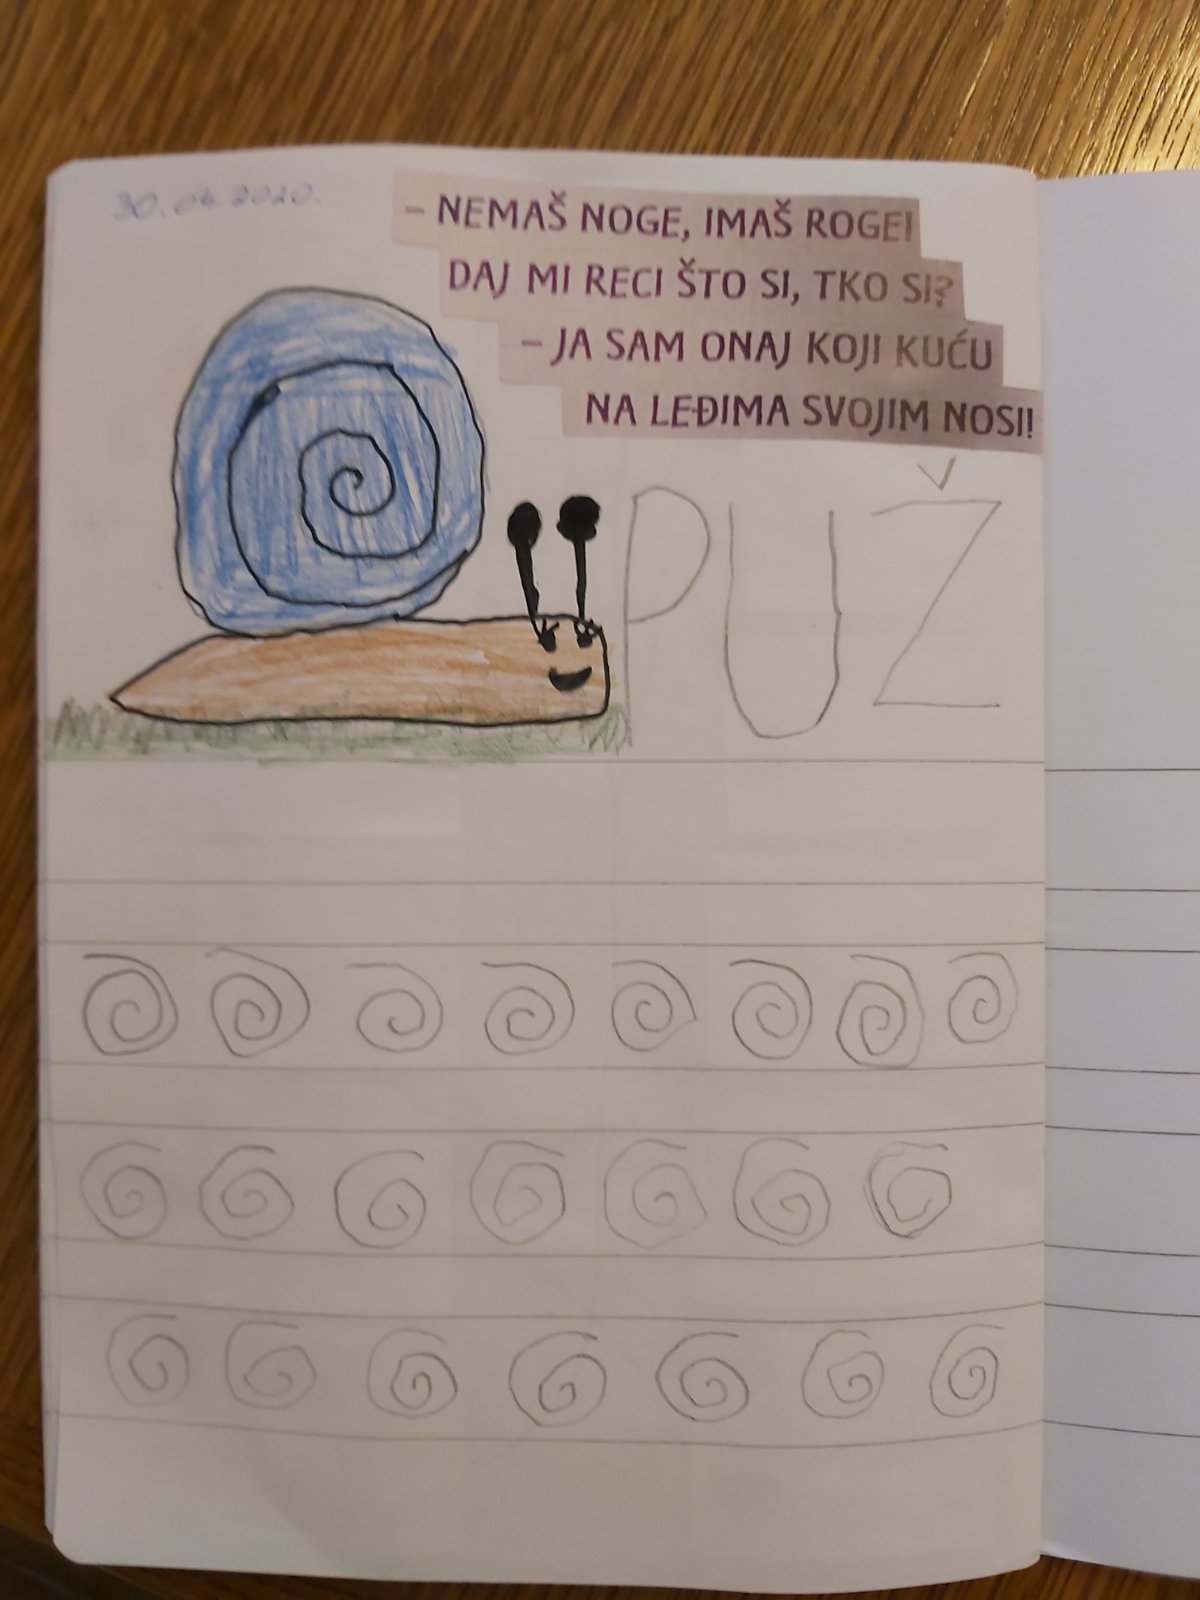 30.06.2020.
– NEMAŠ NOGE, IMAŠ ROGE!
DAJ MI RECI ŠTO SI, TKO SI?
– JA SAM ONAJ KOJI KUĆU
NA LEĐIMA SVOJIM NOSI!
PUŽ